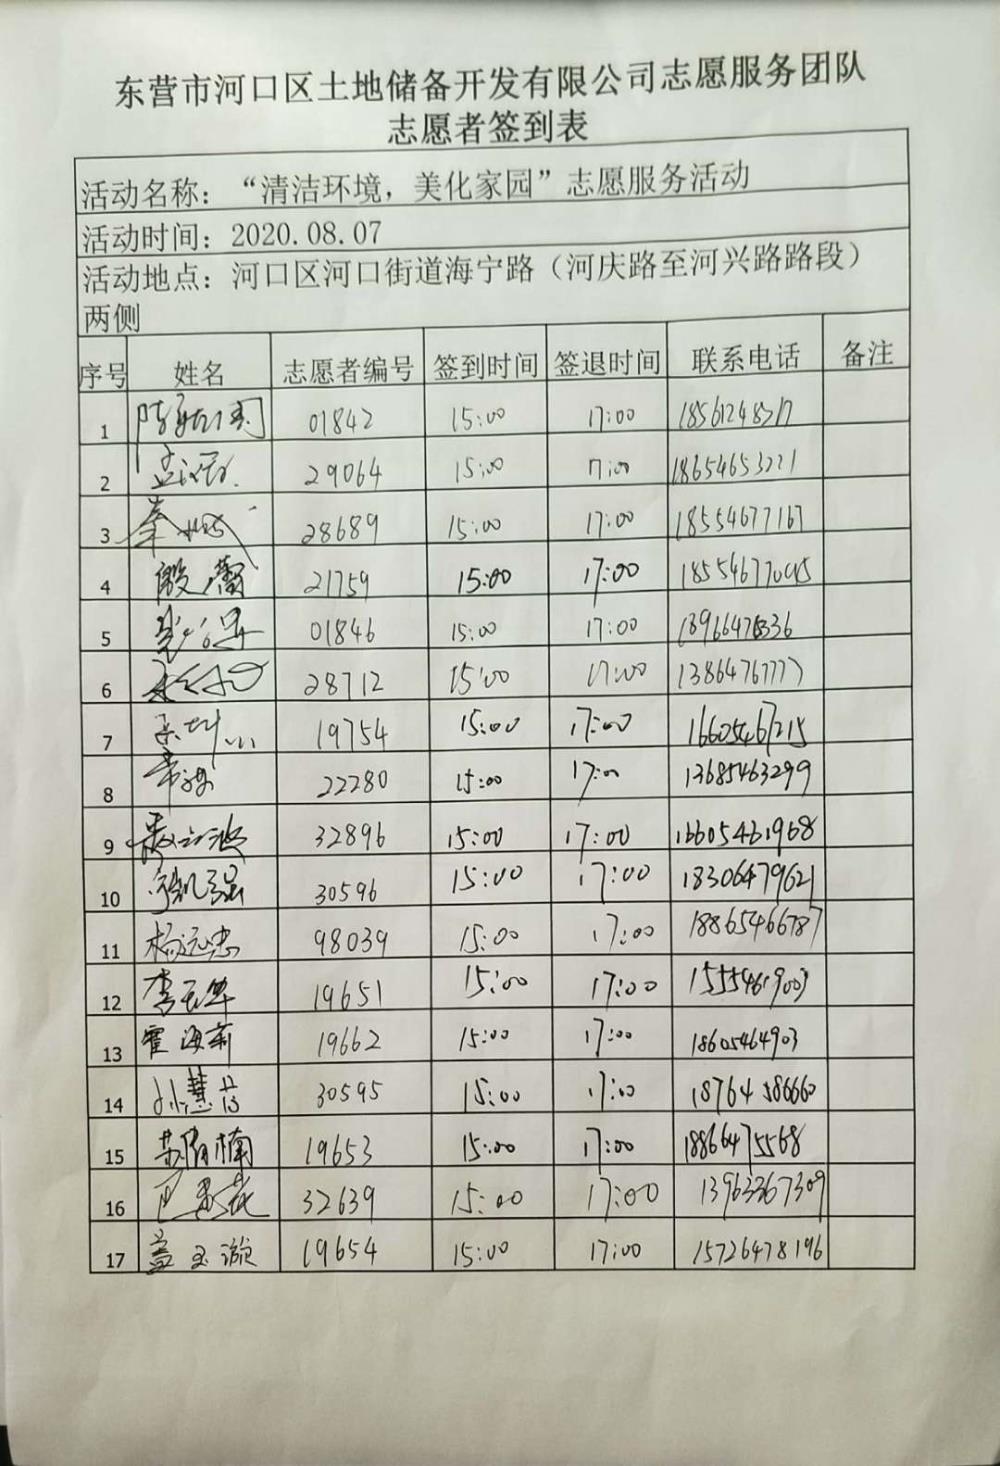 东营市河口区土地储备开发有限公司志愿服务团队
志愿者签到表
活动名称：“清洁环境，美化家园”志愿服务活动
活动时间：2020.08.07
活动地点：河口区河口街道海宁路（河庆路至河兴路路段）
两侧
序号 姓名 志愿者编号 签到时间 签退时间 联系电话 备注
1 01842 15:00 17:00
2 29064 15:00 17:00 18654653221
3 28689 15:00 17:00 18554677167
4 殷蕾 21759 15:00 17:00
5 01846 15:00 17:00
6 28712 15:00 17:00 13864767777
7 19754 15:00 17:00 16605467215
8 22280 15:00 17:00 13685463299
9 32896 15:00 17:00 16605461968
10 30596 15:00 17:00 18306479621
11 杨远忠 98039 15:00 17:00 18865466787
12 19651 15:00 17:00 15554619003
13 霍海莉 19662 15:00 17:00 18605464903
14 孙慧芳 30595 15:00 17:00 18764586660
15 19653 15:00 17:00 18866475568
16 32639 15:00 17:00 13963367309
17 盖玉漩 19654 15:00 17:00 15726478196